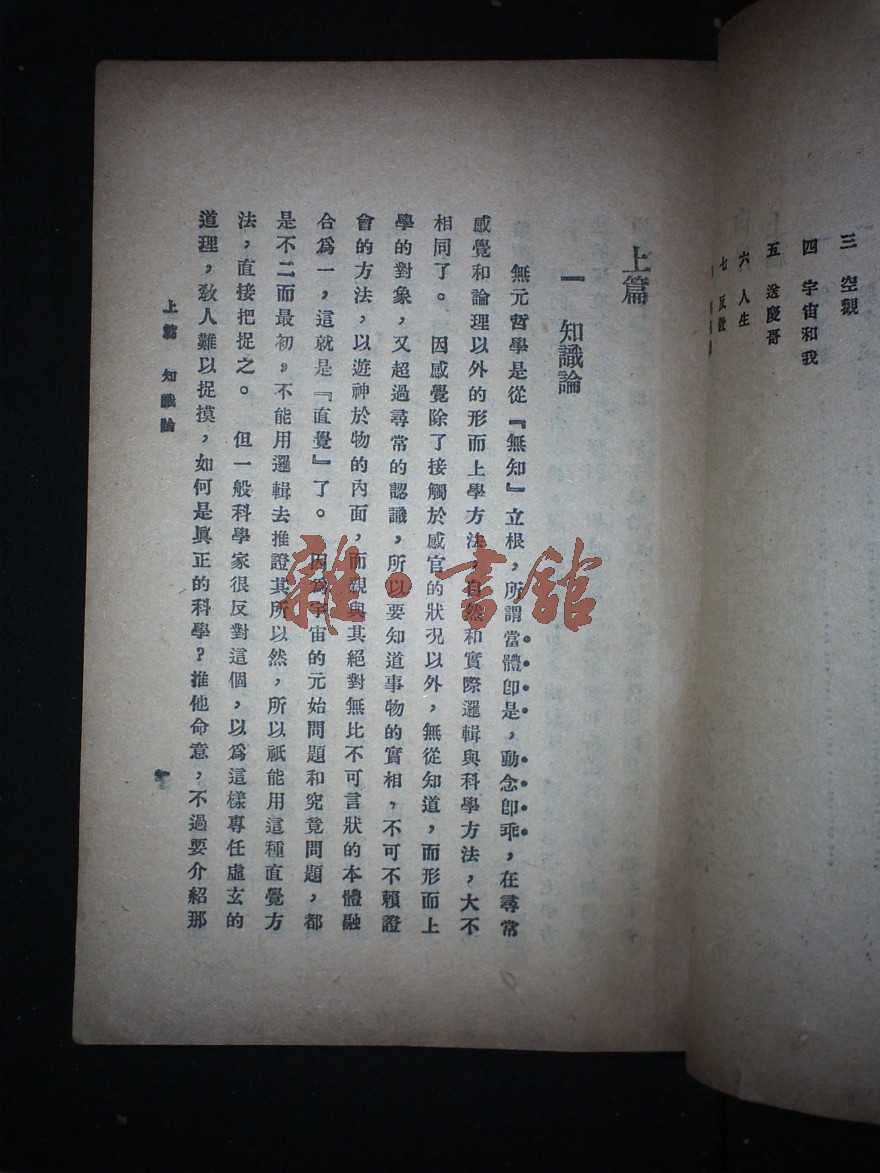 三　空觀
四　宇宙和我
五　送慶哥
六　人生
七　反敎
上篇
一　知識論
無元哲學是從『無知』立根，所謂當體卽是，動念卽乖，在尋常
感覺和論理以外的形而上學方法，自然和實際邏輯與科學方法，大不
相同了。　因感覺除了接觸於感官的狀況以外，無從知道，而形而上
學的對象，又超過尋常的認識，所以要知道事物的實相，不可不賴證
會的方法，以遊神於物的內面，而覩與其絕對無比不可言狀的本體融
合爲一，這就是『直覺』了。　因爲宇宙的元始問題和究竟問題，都
是不二而最初，不能用邏輯去推證其所以然，所以祇能用這種直覺方
法，直接把捉之。　但一般科學家很反對這個，以爲這樣專任虛玄的
道理，敎人難以捉摸，如何是眞正的科學？推他命意，不過要介紹那
上篇　知識論
雜·書館